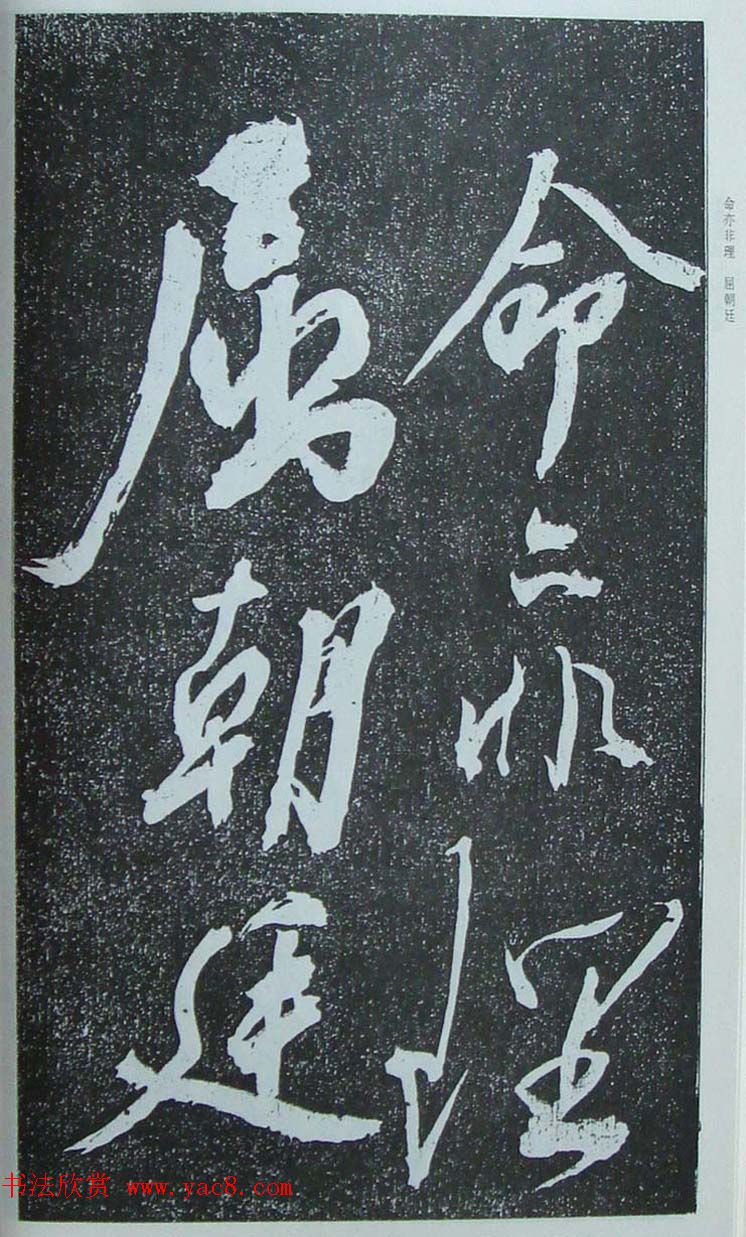 命亦非理
屈朝廷
命亦非理 屈朝廷
书法欣赏 www.yac8.com